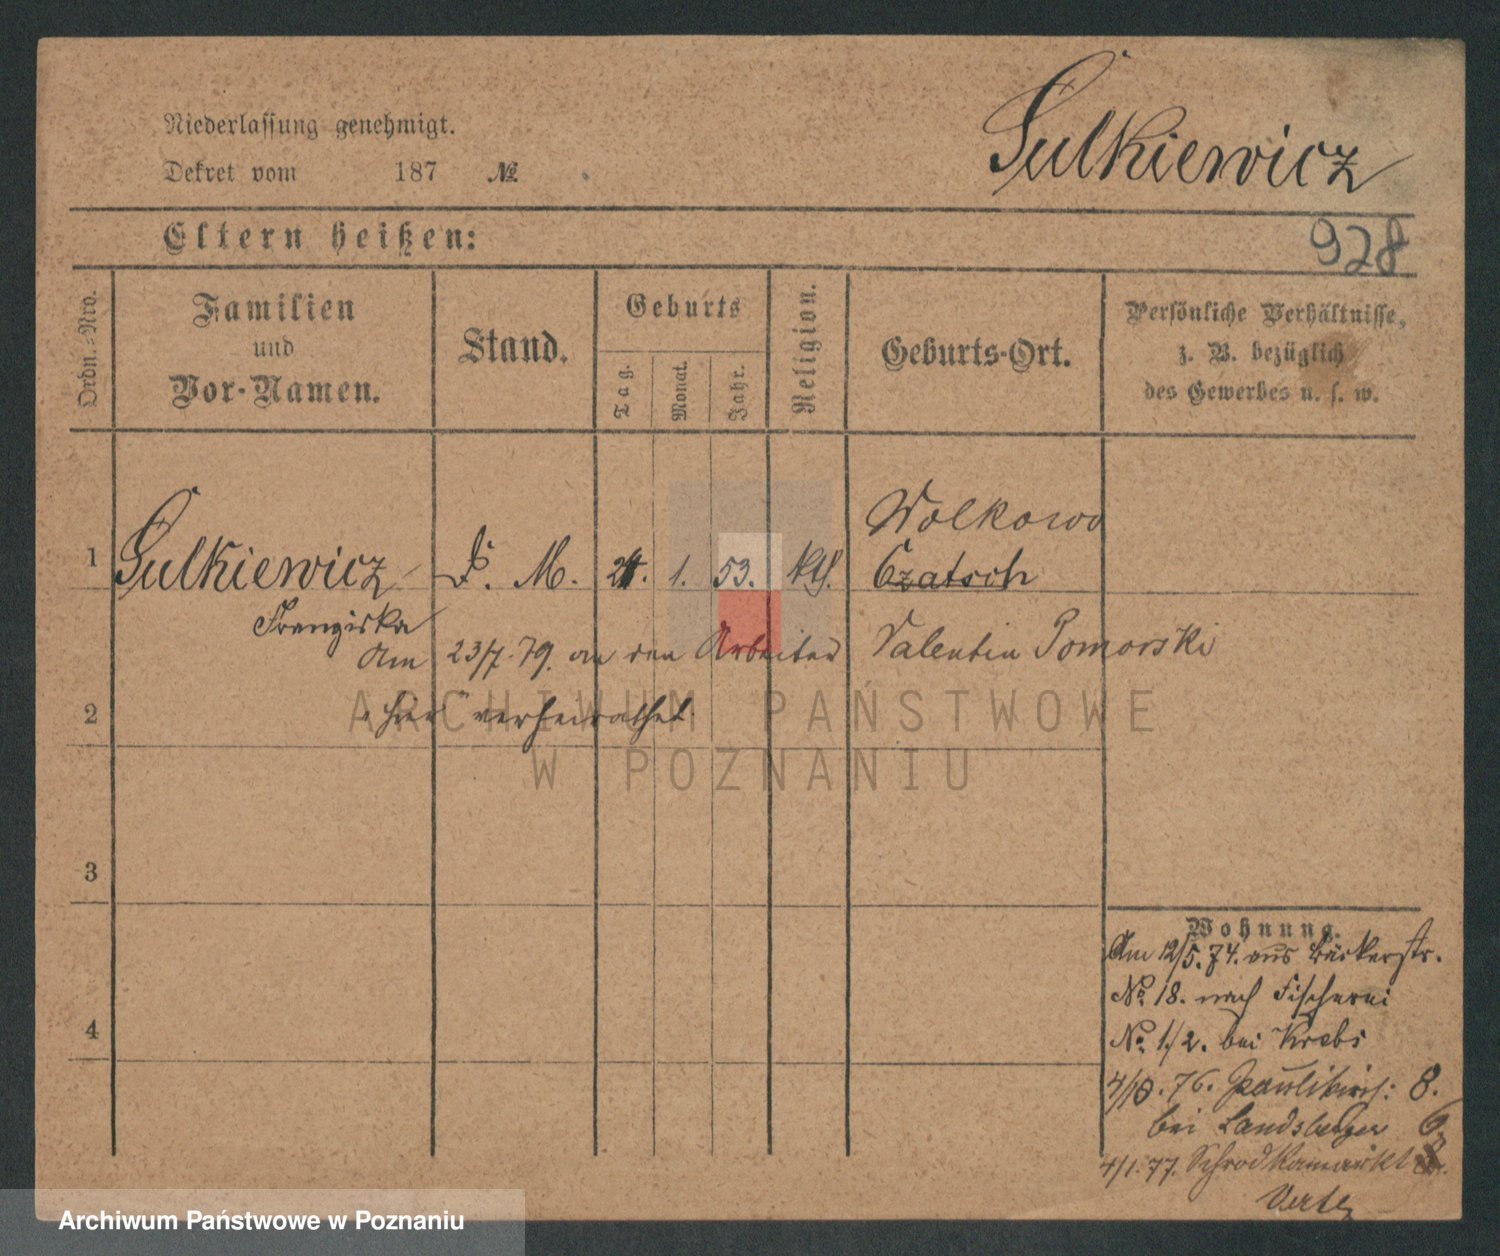 Niederlassung genehmigt.
Dekret vom 187 №
Sulkiewicz
928
Eltern heißen:
Ordn.-Nro.
Familien
und
Vor-Namen.
Stand.
Geburts
Tag.
Monat.
Jahr.
Religion.
Geburts-Ort.
Persönliche Verhältnisse,
z. B. bezüglich
des Gewerbes u. s. w.
Wolkowo
1 Sulkiewicz D. M. 24. 1. 53. kth. Czatsch
Franziska
Am 23/7. 79. an den Arbeiter Valentin Pomorski
2 hier verheirathet.
3
4
Wohnung.
Am 12/5. 74. aus Bäckerstr.
No. 18. nach Fischerei
No. 1/2. bei Krebs
4/10. 76. Paulikirch: 8.
bei Landsberger
4/1. 77. Schrodkamarkt
ARCHIWUM PAŃSTWOWE
W POZNANIU
Archiwum Państwowe w Poznaniu